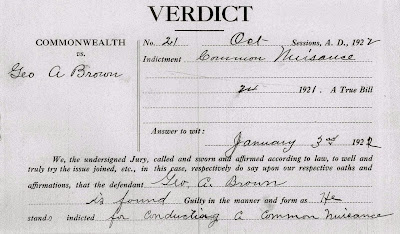 VERDICT
COMMONWEALTH
vs.
Geo A Brown
No. 21 Oct Sessions, A. D., 1922
Indictment Common Nuisance
24 1921. A True Bill
Answer to wit:
January 3rd 1922
We, the undersigned Jury, called and sworn and affirmed according to law, to well and
truly try the issue joined, etc., in this case, respectively do say upon our respective oaths and
affirmations, that the defendant Geo. A. Brown
is found Guilty in the manner and form as He
stands indicted for conducting a Common Nuisance